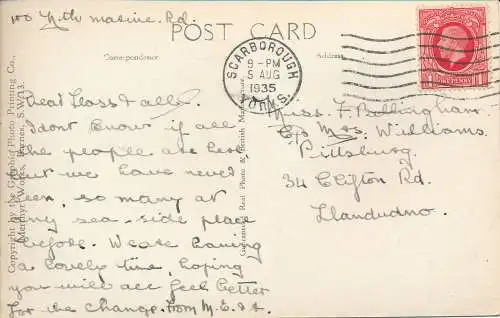 100 Nth marine Rd.
POST CARD
Correspondence
Address
SCARBOROUGH
9-PM
5 AUG
1935
YORKS.
Dear Floss & all,
I dont know if all
the people are here
but we have never
seen so many at
any sea-side place
before. We are having
a lovely time, hoping
you will all feel better
for the change. From M.E. & A.
Miss F. Bellingham
C/o Mrs. Williams
Pittsburg
34 Clifton Rd.
Llandudno.
Copyright by the Graphic Photo Printing Co.,
Merthyr Works, Barnes, S.W.13.
Guaranteed Real Photo & British Manufacture.